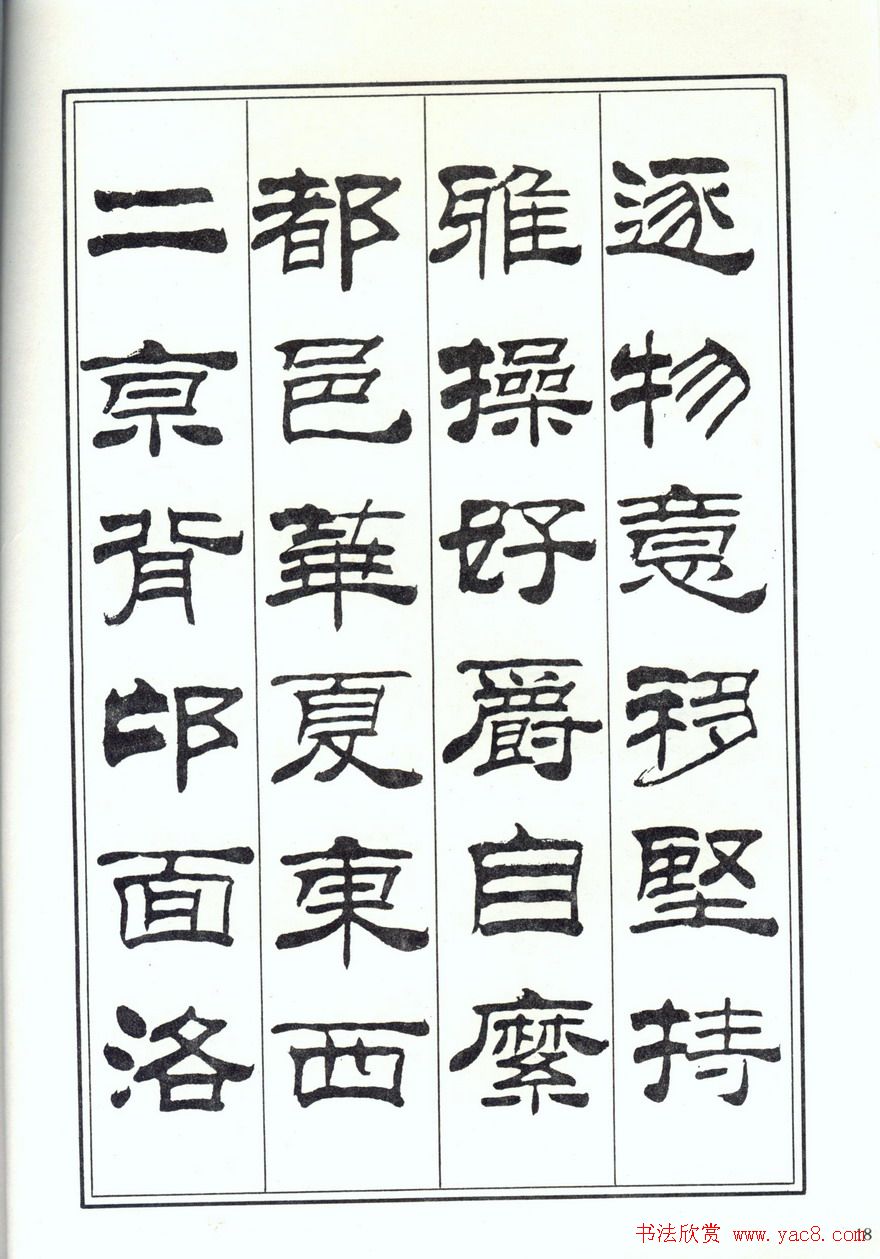 逐物意移堅持
雅操好爵自縻
都邑華夏東西
二京背邙面洛
18
书法欣赏 www.yac8.com